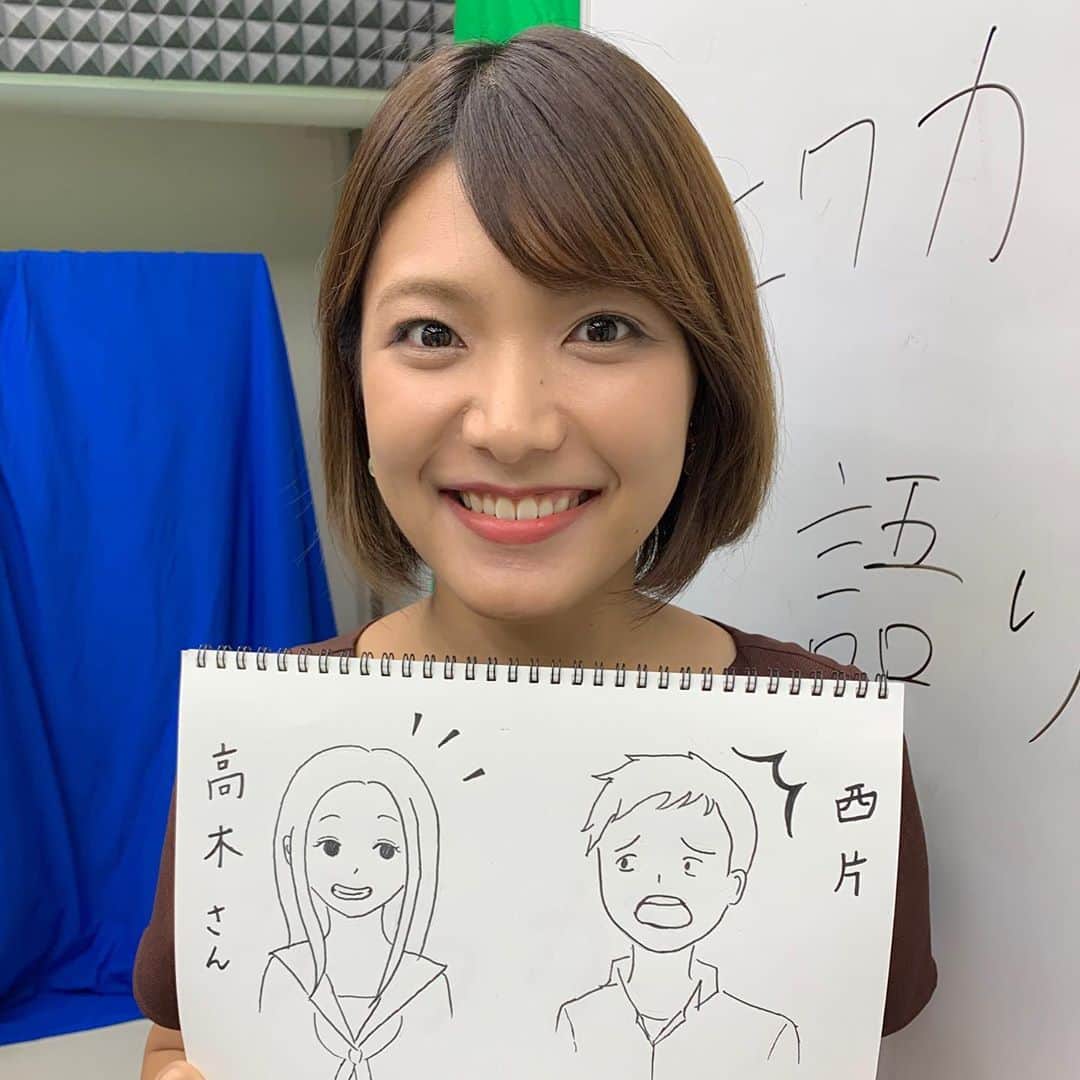 高木さん
西片
ワカ
語